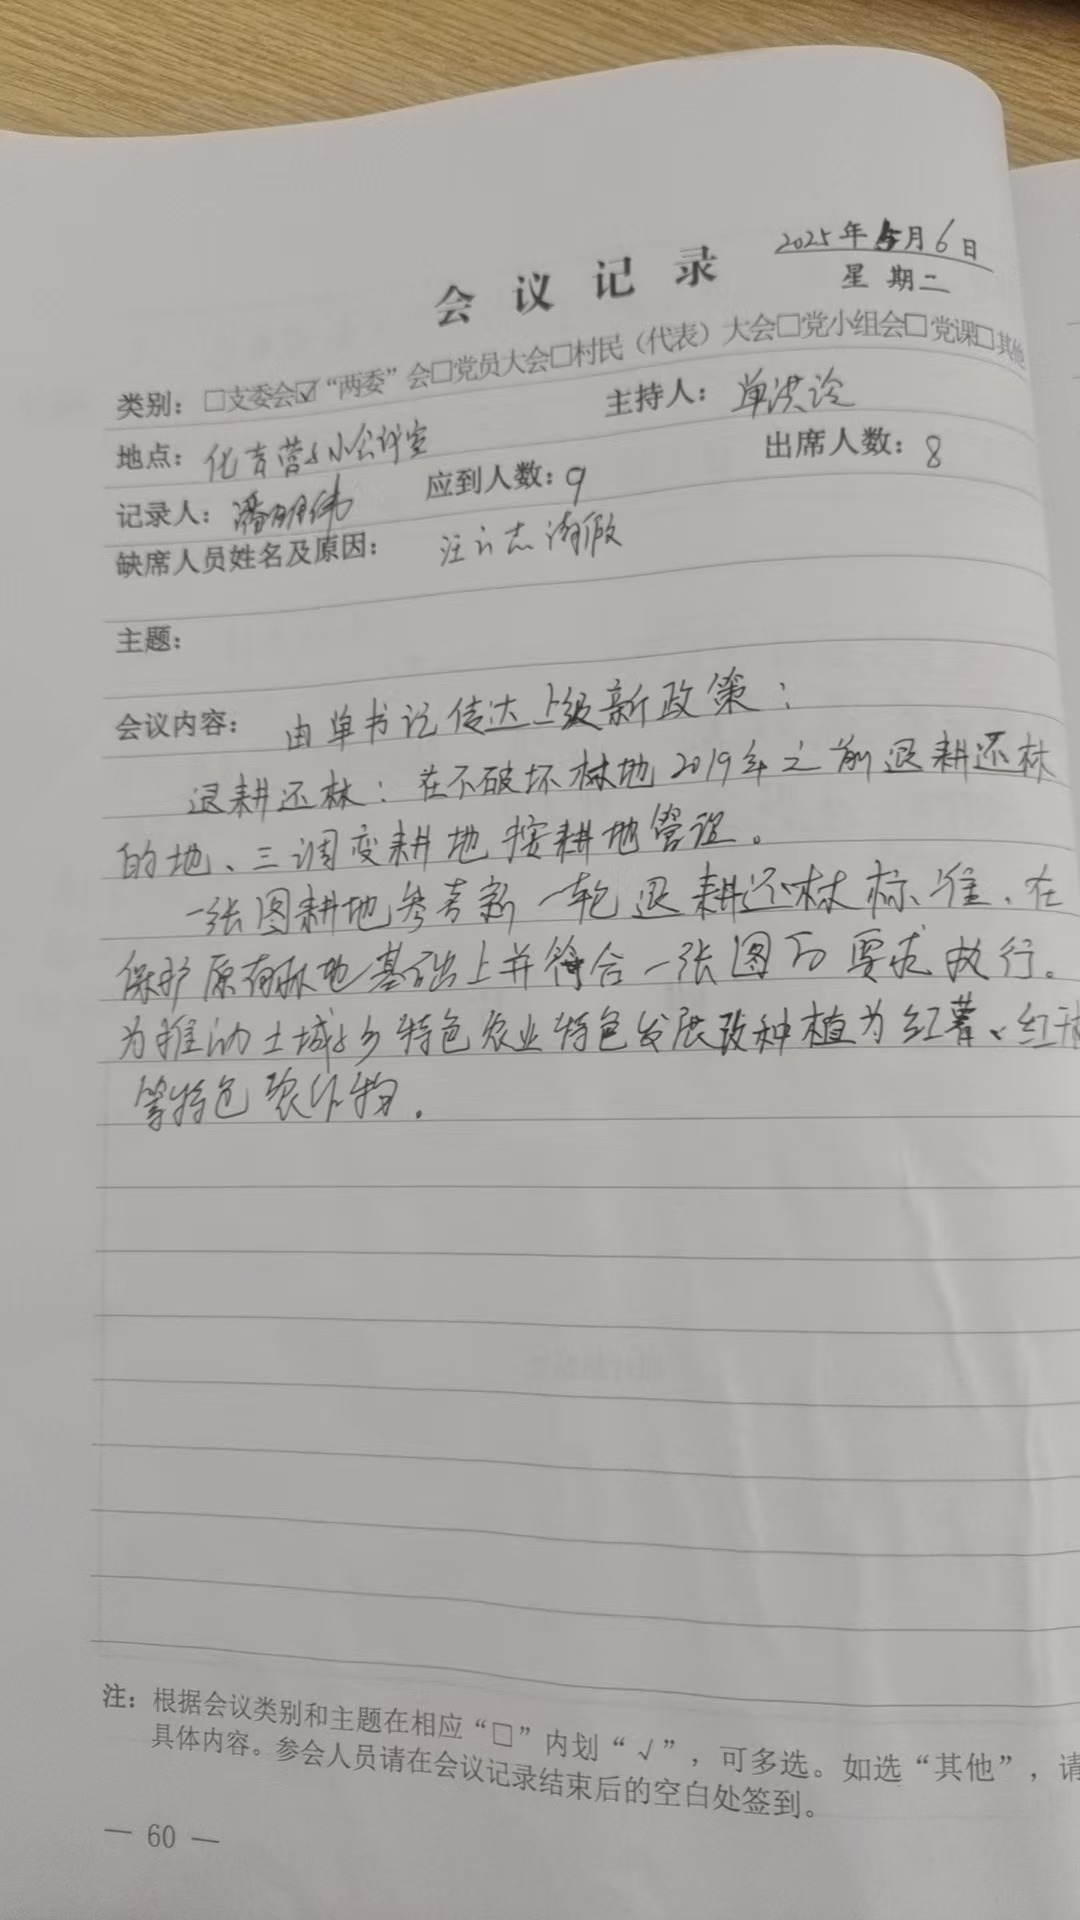 2025年5月6日
会议记录
星期二
类别：□支委会☑“两委”会□党员大会□村民（代表）大会□党小组会□党课□其他
地点：化育营小会议室 主持人：单洪
记录人：潘明伟 应到人数：9 出席人数：8
缺席人员姓名及原因：汪志请假
主题：
会议内容：由单书记传达上级新政策：
退耕还林：在不破坏林地2019年之前退耕还林
的地、三调变耕地按耕地管理。
一张图耕地参考新一轮退耕还林标准、在
保护原有林地基础上并符合一张图的要求执行。
为推动土城乡特色农业特色发展改种植为红薯、红
等特色农作物.
注：根据会议类别和主题在相应“□”内划“√”，可多选。如选“其他”，请
具体内容。参会人员请在会议记录结束后的空白处签到。
— 60 —